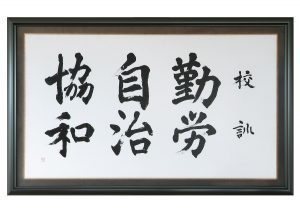 校訓
勤労
自治
協和